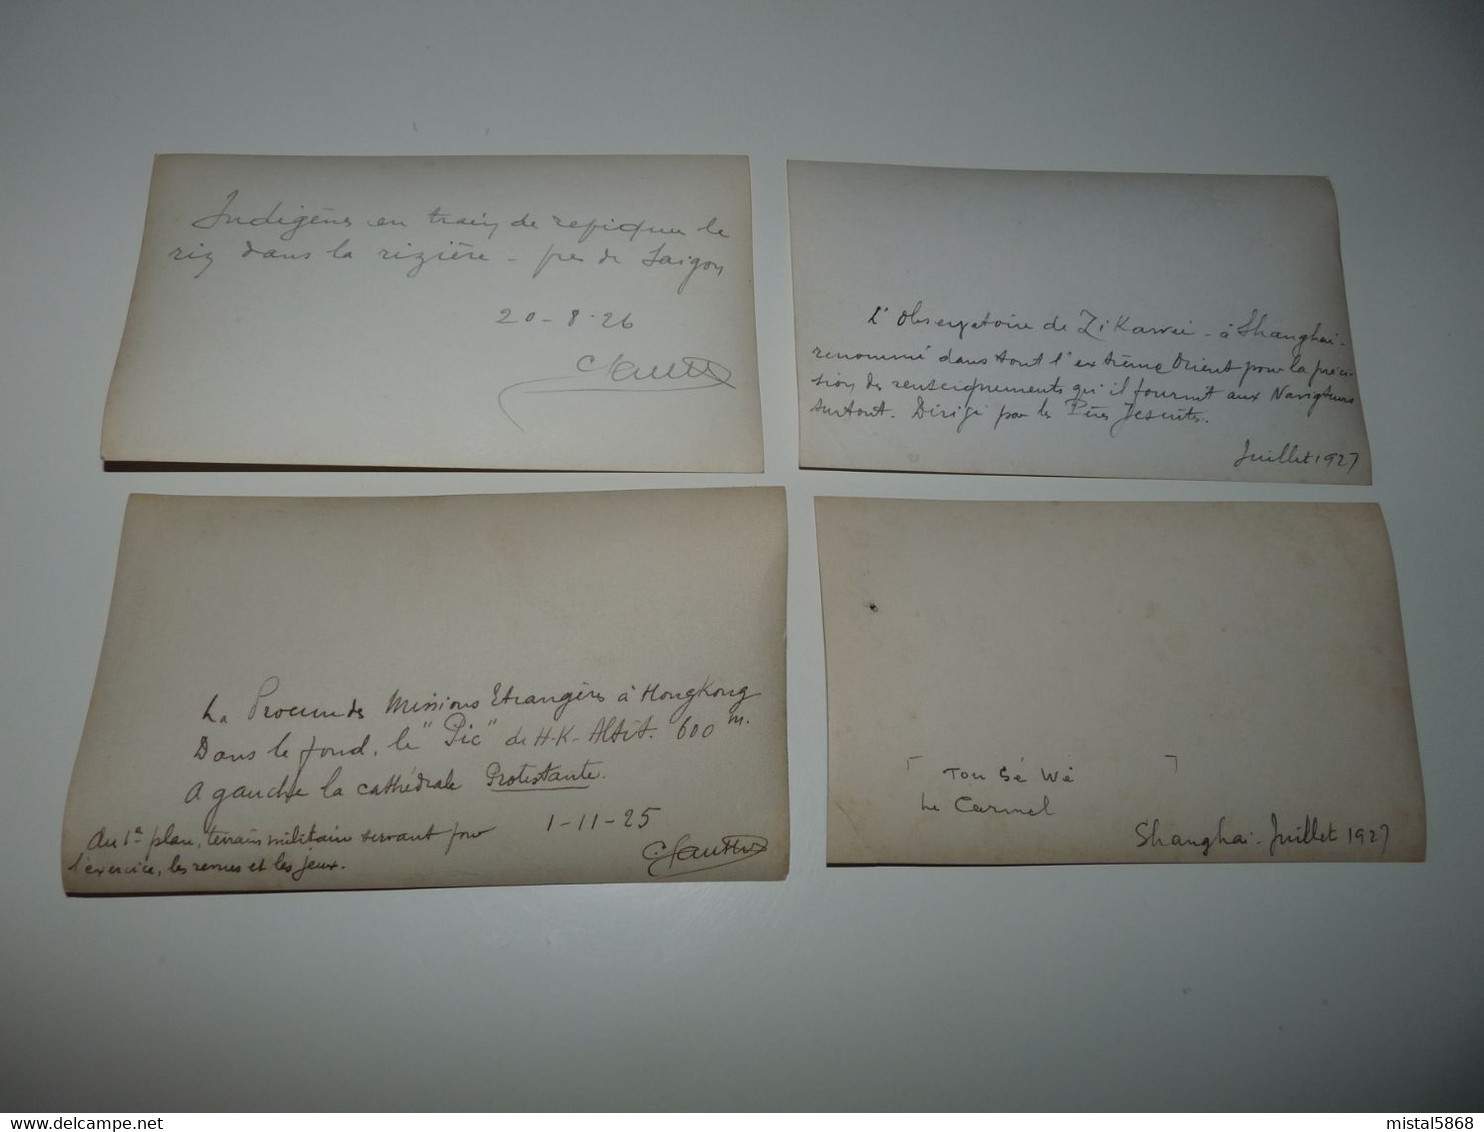 Indigènes en train de repiquer le
riz dans la rizière - près de Saigon
20-8-26
L'Observatoire de Zi Kawei - à Shanghai -
renommé dans tout l'extrême Orient pour la préci-
sion des renseignements qu'il fournit aux Navigateurs
surtout. Dirigé par les Pères Jésuites.
Juillet 1927
La Procure des Missions Etrangères à Hongkong
Dans le fond, le "Pic" de H-K- Altit. 600 m.
A gauche la cathédrale Protestante.
Au 1er plan, terrain militaire servant pour
l'exercice, les revues et les jeux.
1-11-25
Tou Sé Wè
Le Carmel
Shanghai - Juillet 1927
www.delcampe.net
mistal5868